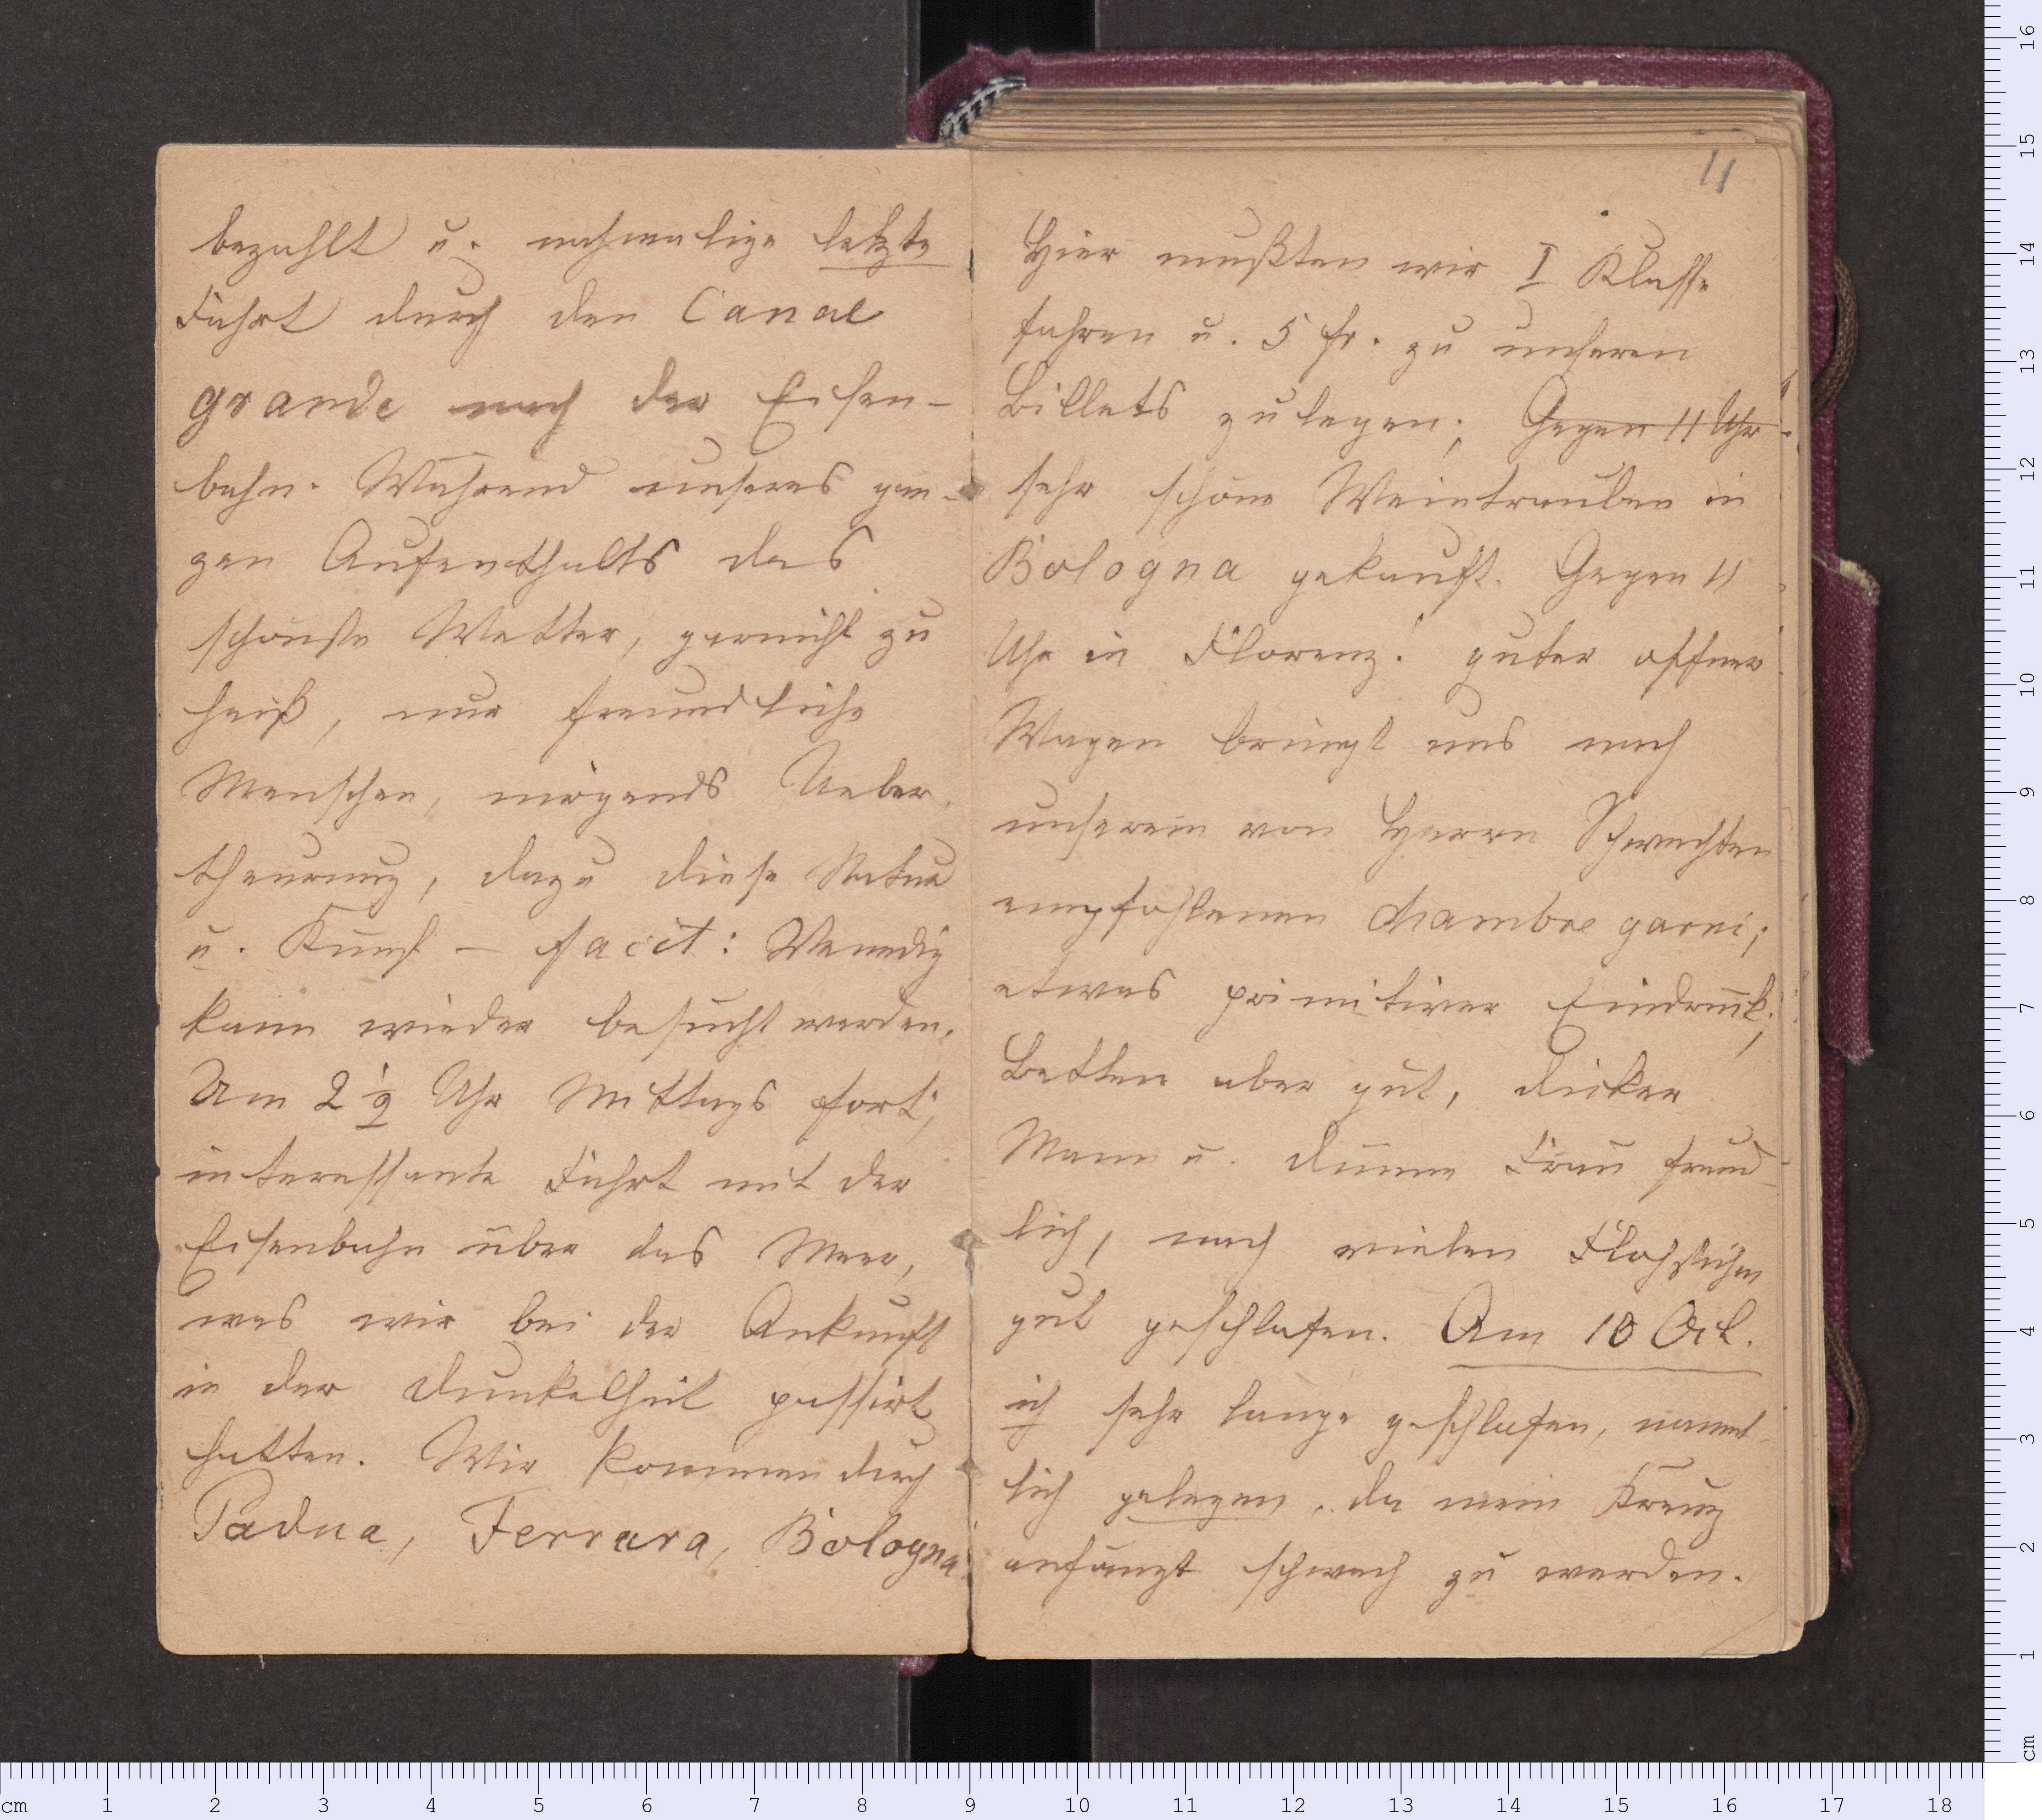 bezahlt u. nochmalige letzte
Fahrt durch den Canal
grande nach der Eisen-
bahn. Während unseres gan-
zen Aufenthalts das
schönste Wetter, garnicht zu
heiß, nur freundliche
Menschen, nirgends Ueber-
theurung, dazu diese Natur
u. Kunst – facit: Venedig
kann wieder besucht werden.
Um 2 1/2 Uhr Mittags fort;
interessante Fahrt mit der
Eisenbahn über das Meer,
was wir bei der Ankunft
in der Dunkelheit passirt
hatten. Wir kommen durch
Padua, Ferrara, Bologna
11
Hier mußten wir I Klasse
fahren u. 5 fr. zu unseren
Billets zulegen; Gegen 11 Uhr
sehr schöne Weintrauben in
Bologna gekauft. Gegen 11
Uhr in Florenz! guter offner
Wagen bringt uns nach
unserem von Herrn Schwechten
empfohlenen chambre garni;
etwas primitiver Eindruck;
Betten aber gut, dicker
Mann u. dünne Frau freund-
lich, nach vielen Flohstichen
gut geschlafen. Am 10 Oct.
ich sehr lange geschlafen, nament-
lich gelegen, da mein Kreuz
anfängt schwach zu werden.